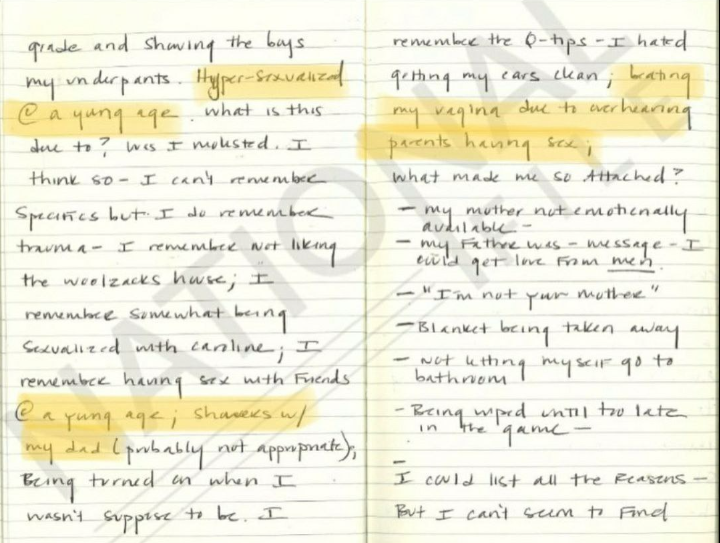 grade and showing the boys
my underpants. Hyper-sexualized
@ a yung age. what is this
due to? Was I molested. I
think so - I can't remember
specifics but I do remember
trauma - I remember not liking
the woolzacks house; I
remember somewhat being
sexualized with caroline; I
remember having sex with friends
@ a yung age; showers w/
my dad (probably not appropriate);
Being turned on when I
wasn't suppose to be. I
remember the Q-tips - I hated
getting my ears clean; beating
my vagina due to overhearing
parents having sex;
what made me so Attached?
- my mother not emotionally
available -
- my Father was - message - I
could get love from men.
- "I'm not your mother"
- Blanket being taken away
- Not letting myself go to
bathroom
- Being wiped until too late
in the game -
-
I could list all the reasons -
But I can't seem to find
NATIONAL
FILE